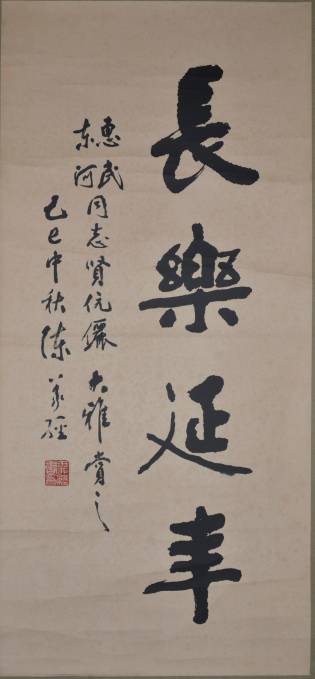 長樂延年
惠武
東河同志賢伉儷大雅賞之
己巳中秋陳義經